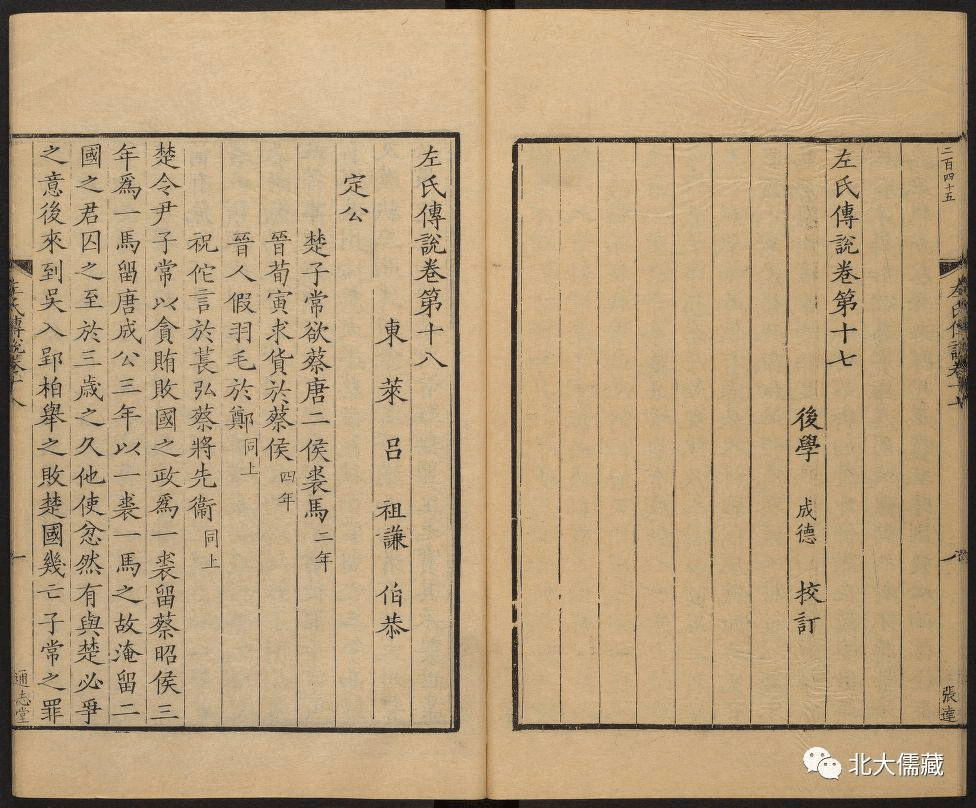 二百四十五
左氏傳說卷十七
張達
左氏傳說卷第十七
後學 成德 校訂
左氏傳說卷第十八
東萊呂祖謙伯恭
定公
楚子常欲蔡唐二侯裘馬二年
晉荀寅求貨於蔡侯四年
晉人假羽毛於鄭同上
祝佗言於萇弘蔡將先衞同上
楚令尹子常以貪賄敗國之政爲一裘留蔡昭侯三
年爲一馬留唐成公三年以一裘一馬之故淹留二
國之君囚之至於三歲之久他使忿然有與楚必爭
之意後來到吳入郢柏舉之敗楚國幾亡子常之罪
左氏傳說卷十八
一
通志堂
北大儒藏